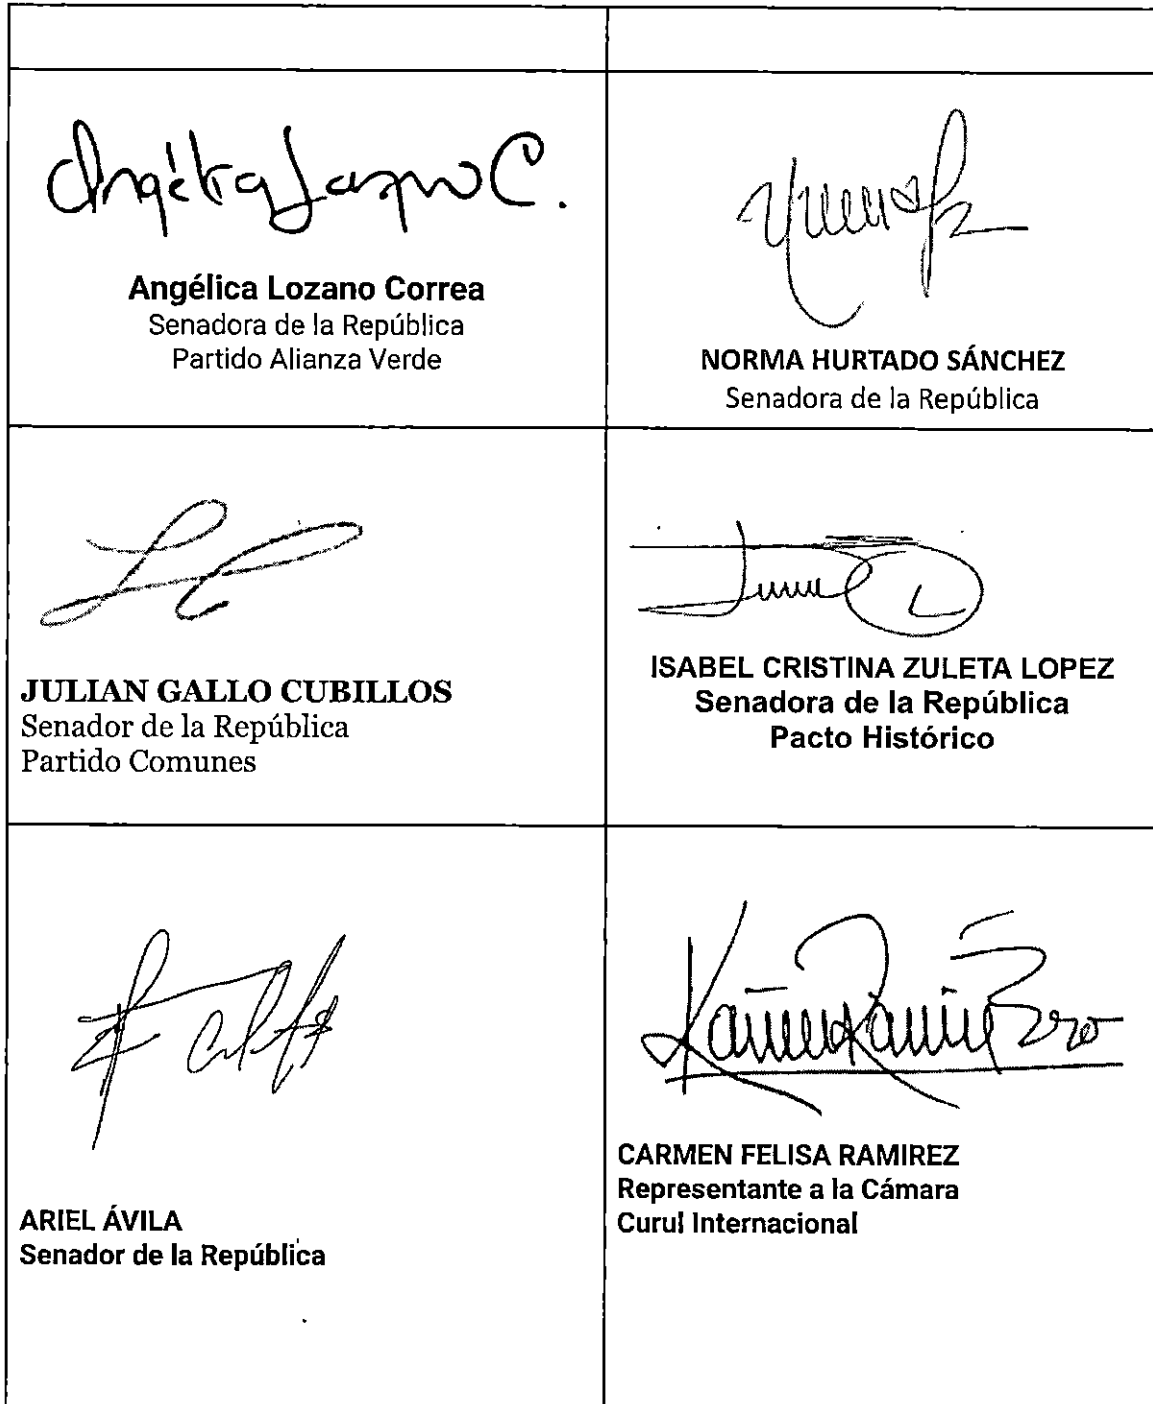 Angélica Lozano C.
Angélica Lozano Correa
Senadora de la República
Partido Alianza Verde
NORMA HURTADO SÁNCHEZ
Senadora de la República
JULIAN GALLO CUBILLOS
Senador de la República
Partido Comunes
ISABEL CRISTINA ZULETA LOPEZ
Senadora de la República
Pacto Histórico
ARIEL ÁVILA
Senador de la República
CARMEN FELISA RAMIREZ
Representante a la Cámara
Curul Internacional